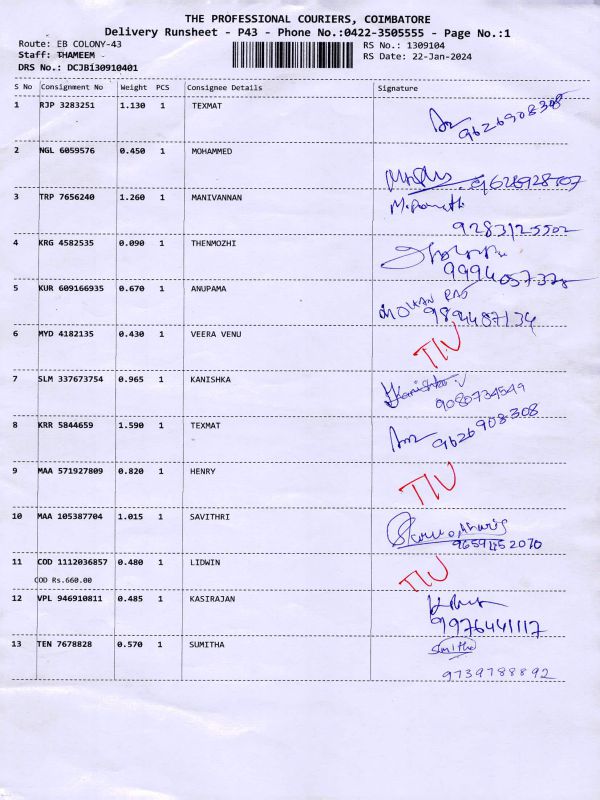 THE PROFESSIONAL COURIERS, COIMBATORE
Delivery Runsheet - P43 - Phone No.:0422-3505555 - Page No.:1
Route: EB COLONY-43 RS No.: 1309104
Staff: THAMEEM RS Date: 22-Jan-2024
DRS No.: DCJB130910401
S No Consignment No Weight PCS Consignee Details Signature
1 RJP 3283251 1.130 1 TEXMAT
9626908308
2 NGL 6059576 0.450 1 MOHAMMED
3 TRP 7656240 1.260 1 MANIVANNAN
9283125502
4 KRG 4582535 0.090 1 THENMOZHI
5 KUR 609166935 0.670 1 ANUPAMA
MOHAN RAJ
9894487134
6 MYD 4182135 0.430 1 VEERA VENU
7 SLM 337673754 0.965 1 KANISHKA
Kanishka
9080734549
8 KRR 5844659 1.590 1 TEXMAT
9626908308
9 MAA 571927809 0.820 1 HENRY
10 MAA 105387704 1.015 1 SAVITHRI
11 COD 1112036857 0.480 1 LIDWIN
COD Rs.660.00
12 VPL 946910811 0.485 1 KASIRAJAN
9976441117
13 TEN 7678828 0.570 1 SUMITHA
Sumitha
9739788892